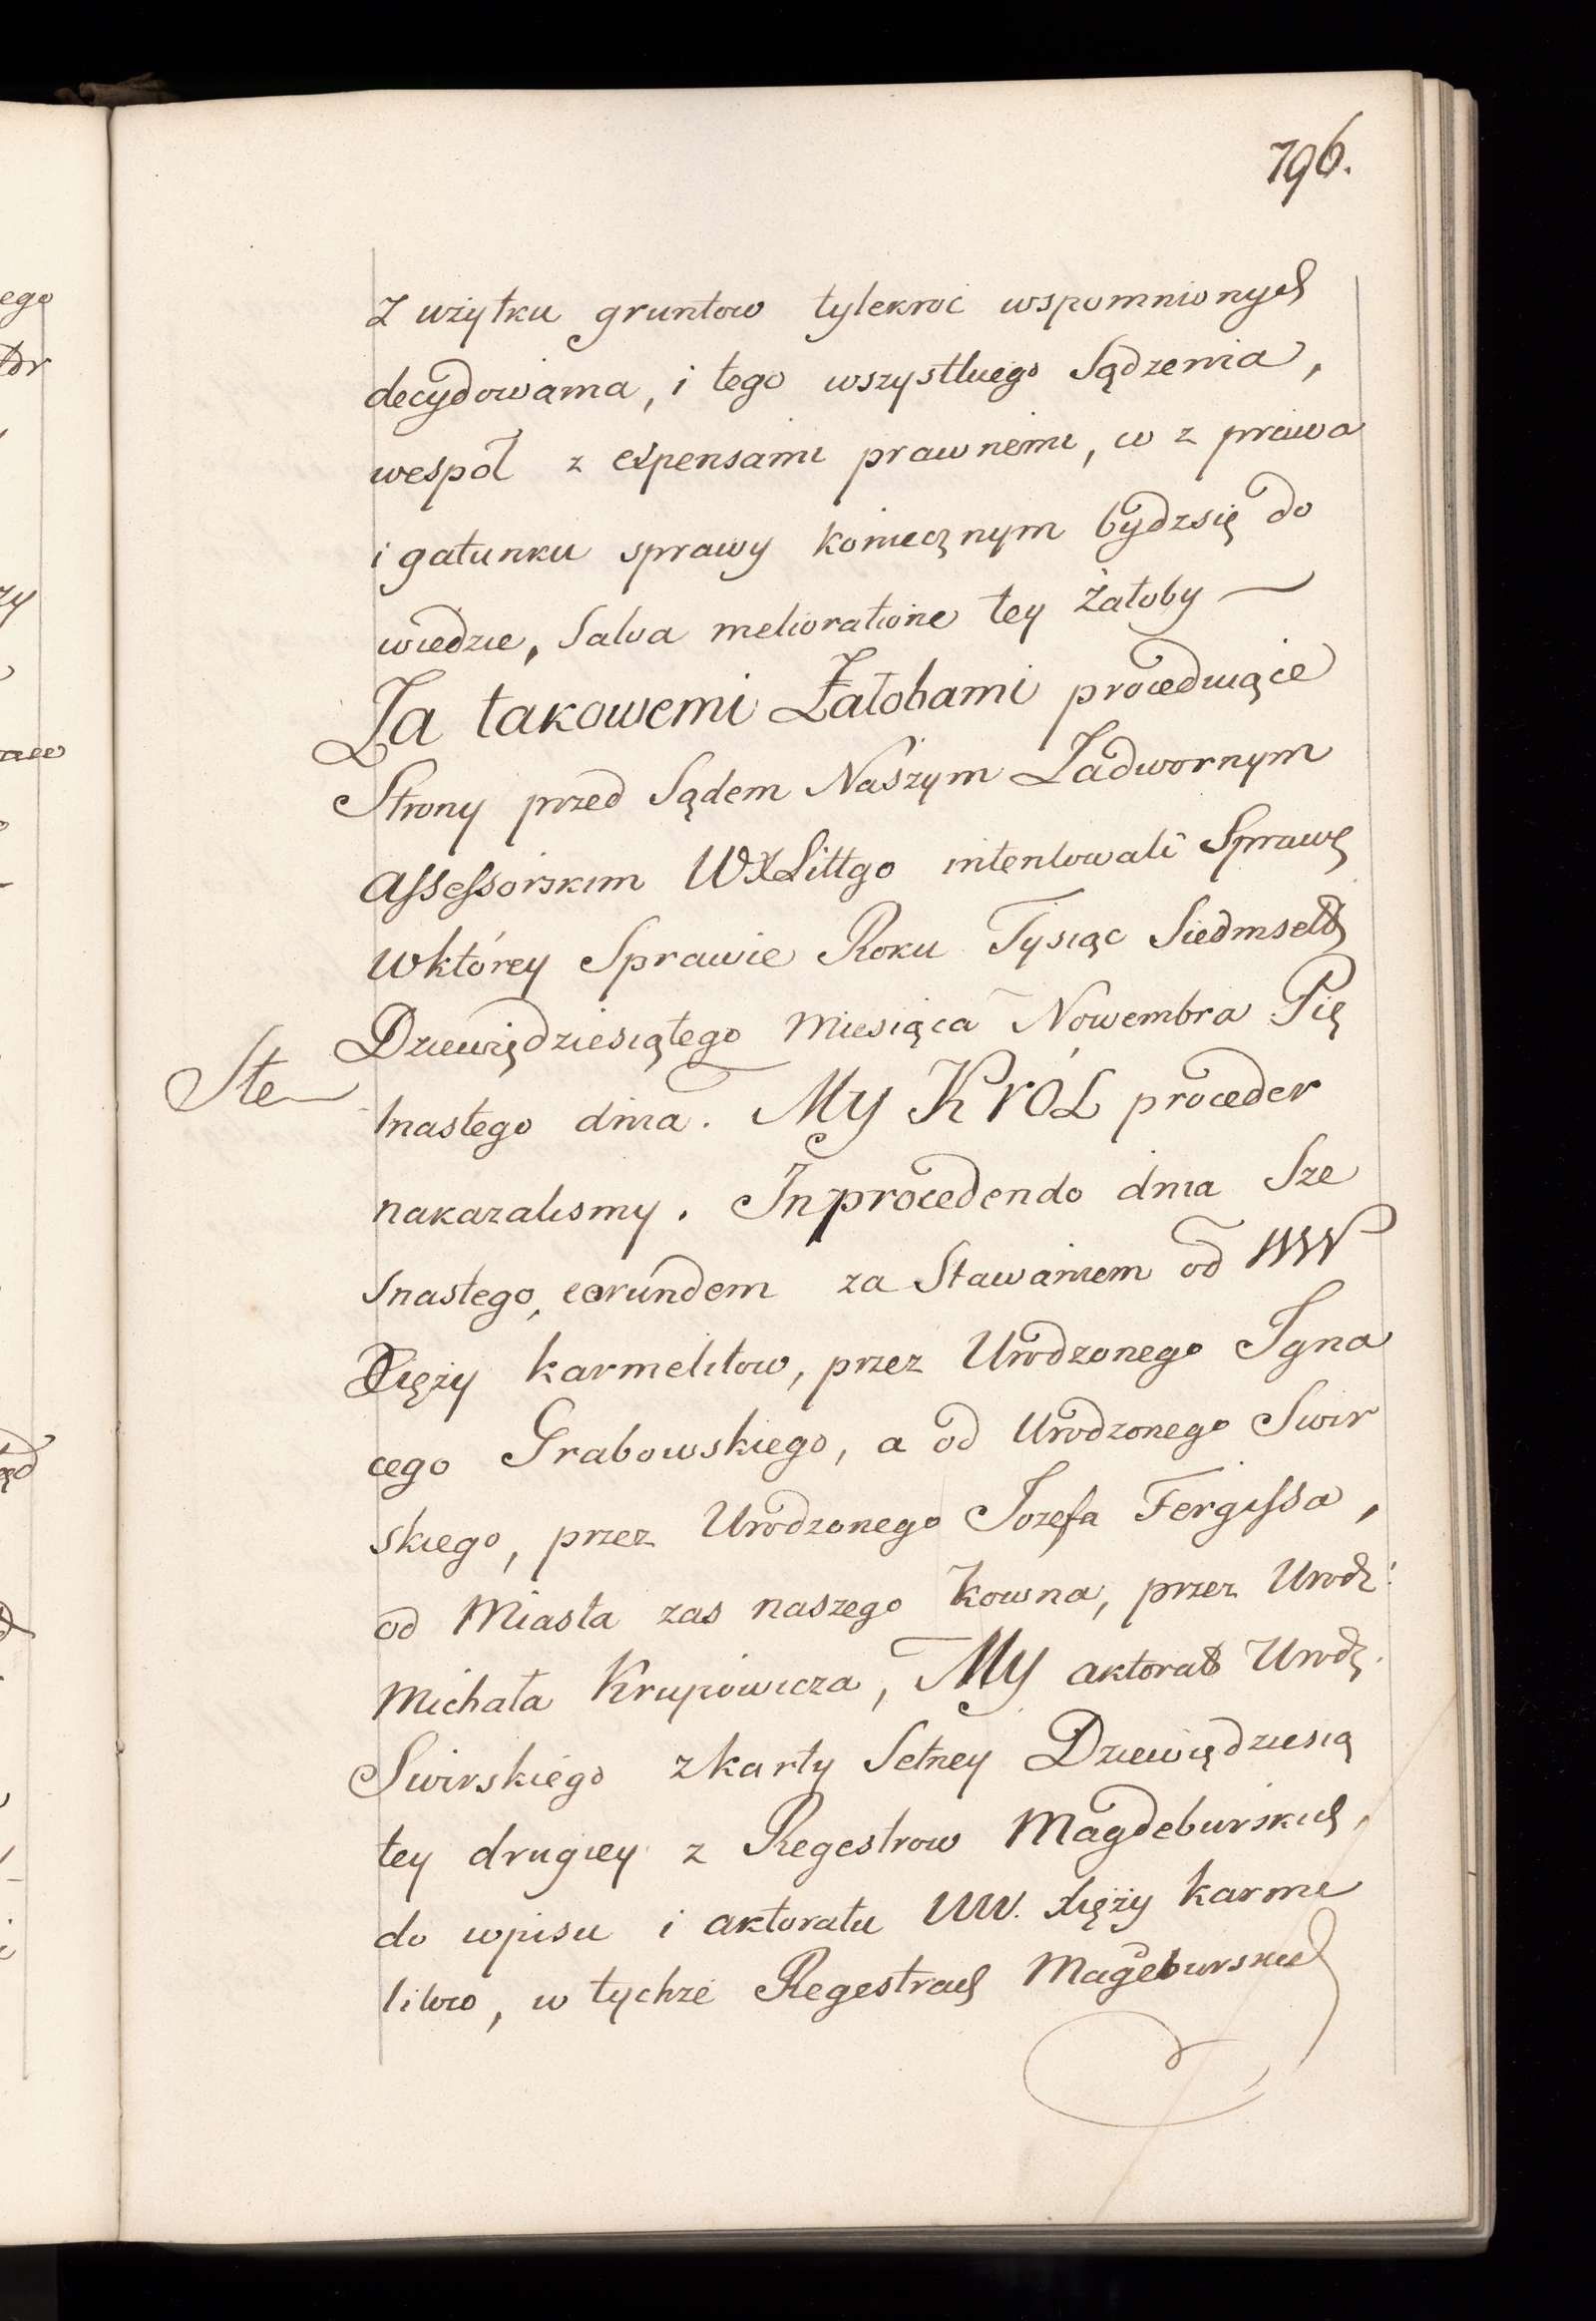 796.
z użytku gruntow tylekroć wspomnionych
decydowania, i tego wszystkiego Sądzenia,
wespół z expensami prawnemi, co z prawa
i gatunku sprawy koniecznym bydz się do
wiedzie, Salva melioratione tey Żałoby —
Za takowemi Żałobami proceduiące
Strony przed Sądem Naszym Zadwornym
Assessorskim WXLittgo intentowali Sprawę
w którey Sprawie Roku Tysiąc Siedmset
Dziewiędziesiątego Miesiąca Nowembra Pię
Ste
tnastego dnia. My KróL proceder
nakazalismy. In procedendo dnia Sze
snastego, eorundem za Stawaniem od WW
Xięży Karmelitow, przez Urodzonego Igna
cego Grabowskiego, a od Urodzonego Swir
skiego, przez Urodzonego Jozefa Fergissa,
od Miasta zas naszego Kowna, przez Urodz:
Michała Krupowicza, My aktorat Urodz.
Swirskiego z karty Setney Dziewiędziesią
tey drugiey z Regestrow Magdeburskich,
do wpisu i aktoratu WW. Xięży Karme
litow, w tychże Regestrach Magdeburskich